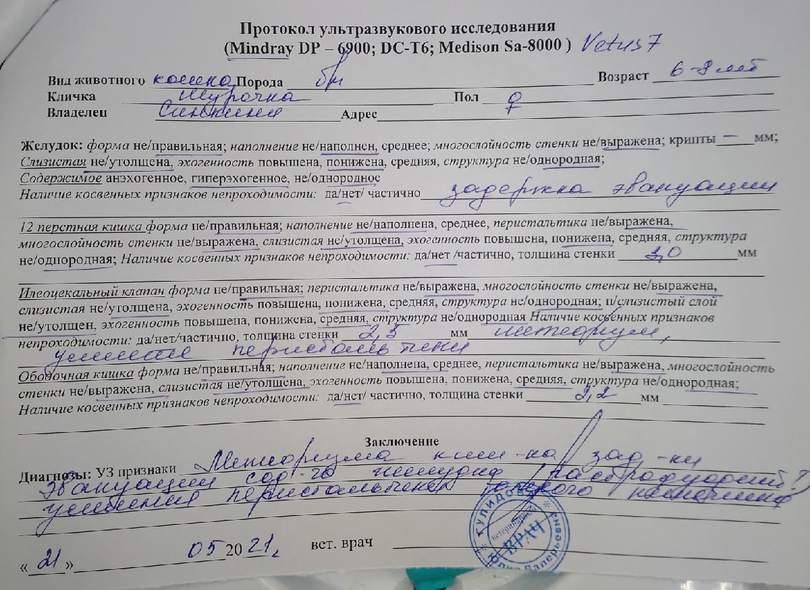 Протокол ультразвукового исследования
(Mindray DP – 6900; DC-T6; Medison Sa-8000 ) Vetus7
Вид животного кошка Порода бп Возраст 6-8 лет
Кличка Шурочка Пол ♀
Владелец Адрес
Желудок: форма не/правильная; наполнение не/наполнен, среднее; многослойность стенки не/выражена; крипты — мм;
Слизистая не/утолщена, эхогенность повышена, понижена, средняя, структура не/однородная;
Содержимое анэхогенное, гиперэхогенное, не/однородное
Наличие косвенных признаков непроходимости: да/нет/ частично задержка эвакуации
12 перстная кишка форма не/правильная; наполнение не/наполнена, среднее, перистальтика не/выражена,
многослойность стенки не/выражена, слизистая не/утолщена, эхогенность повышена, понижена, средняя, структура
не/однородная; Наличие косвенных признаков непроходимости: да/нет /частично, толщина стенки 2,0 мм
Илеоцекальный клапан форма не/правильная; перистальтика не/выражена, многослойность стенки не/выражена,
слизистая не/утолщена, эхогенность повышена, понижена, средняя, структура не/однородная; п/слизистый слой
не/утолщен, эхогенность повышена, понижена, средняя, структура не/однородная Наличие косвенных признаков
непроходимости: да/нет/частично, толщина стенки 2,3 мм метеоризм,
усиление перистальтики
Ободочная кишка форма не/правильная; наполнение не/наполнена, среднее, перистальтика не/выражена, многослойность
стенки не/выражена, слизистая не/утолщена, эхогенность повышена, понижена, средняя, структура не/однородная;
Наличие косвенных признаков непроходимости: да/нет/ частично, толщина стенки 2,2 мм
Заключение
Диагнозы: УЗ признаки Метеоризма киш-ка, зад-ки
эвакуации сод-го желудка
усиления перистальтики кишечника
«21» 05 2021, вет. врач
ВРАЧ